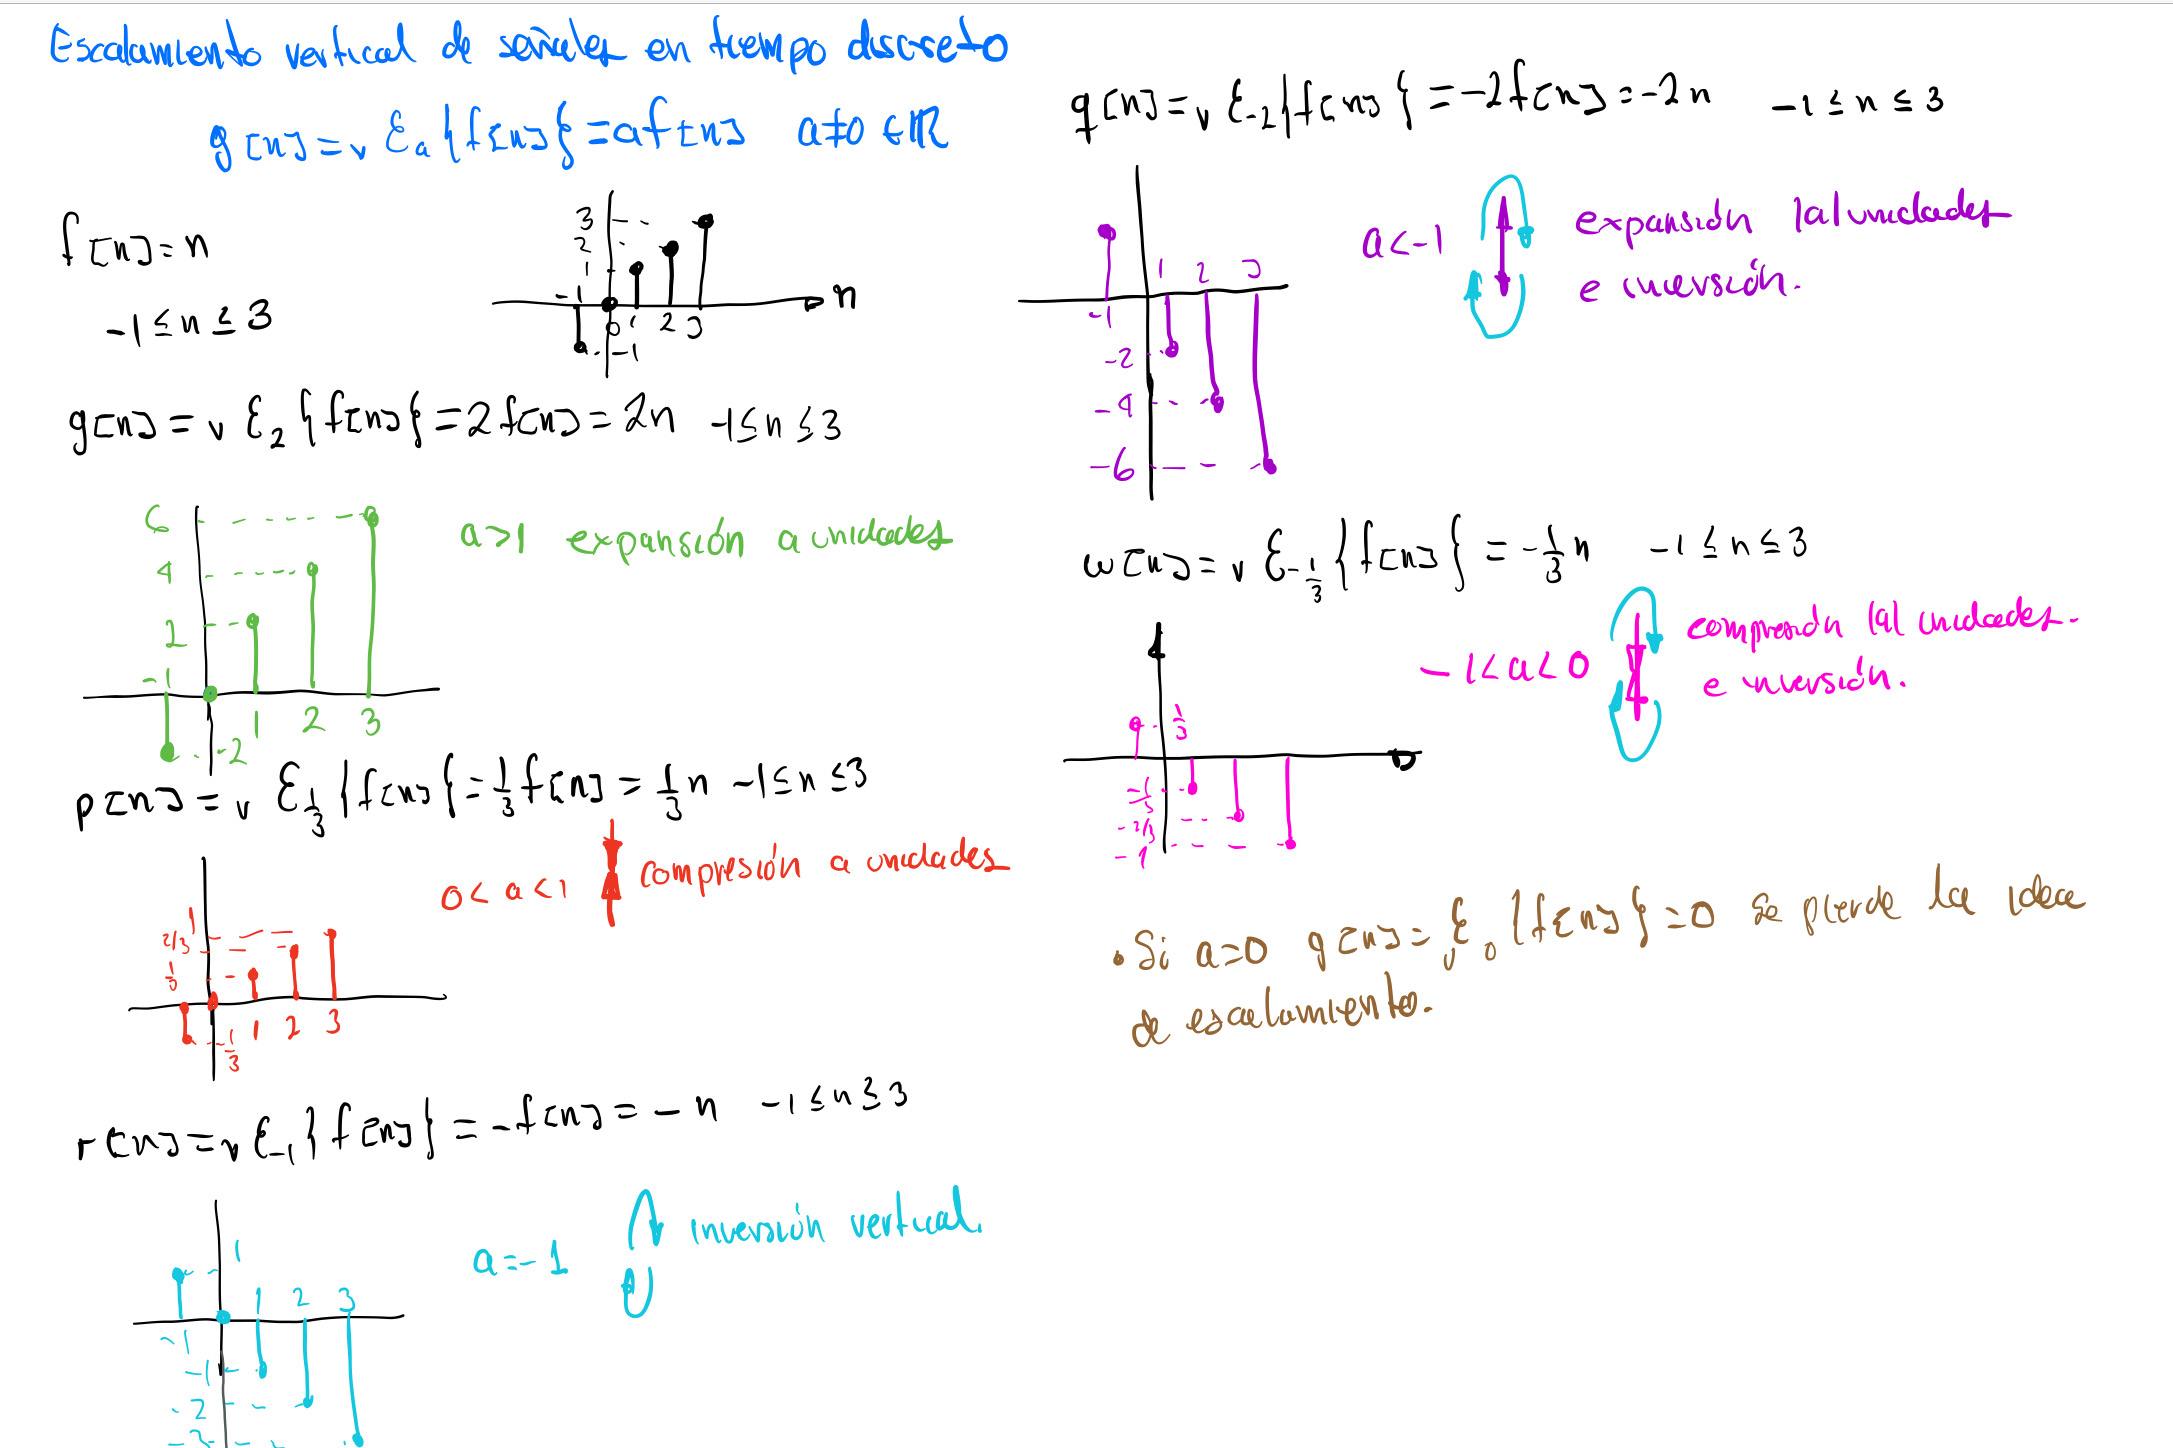 Escalamiento vertical de señales en tiempo discreto
g[n] = v ℰa {f[n]} = a f[n]   a≠0 ∈ ℝ
f[n] = n
-1 ≤ n ≤ 3
3
2
1
-1
0 1 2 3
n
-1
g[n] = v ℰ2 {f[n]} = 2 f[n] = 2n   -1 ≤ n ≤ 3
6
4
2
-1
1 2 3
-2
a>1 expansión a unidades
p[n] = v ℰ1/3 {f[n]} = 1/3 f[n] = 1/3 n   -1 ≤ n ≤ 3
0 < a < 1 compresión a unidades
1
2/3
1/3
1 2 3
-1/3
r[n] = v ℰ-1 {f[n]} = -f[n] = -n   -1 ≤ n ≤ 3
a = -1 inversión vertical.
1
1 2 3
-1
-1
-2
-3
q[n] = v ℰ-2 {f[n]} = -2f[n] = -2n   -1 ≤ n ≤ 3
1 2 3
-1
-2
-4
-6
a < -1 expansión |a| unidades
e inversión.
w[n] = v ℰ-1/3 {f[n]} = -1/3 n   -1 ≤ n ≤ 3
-1 < a < 0 compresión |a| unidades.
e inversión.
1/3
-1/3
-2/3
-1
• Si a=0 g[n] = v ℰ0 {f[n]} = 0 se pierde la idea
de escalamiento.